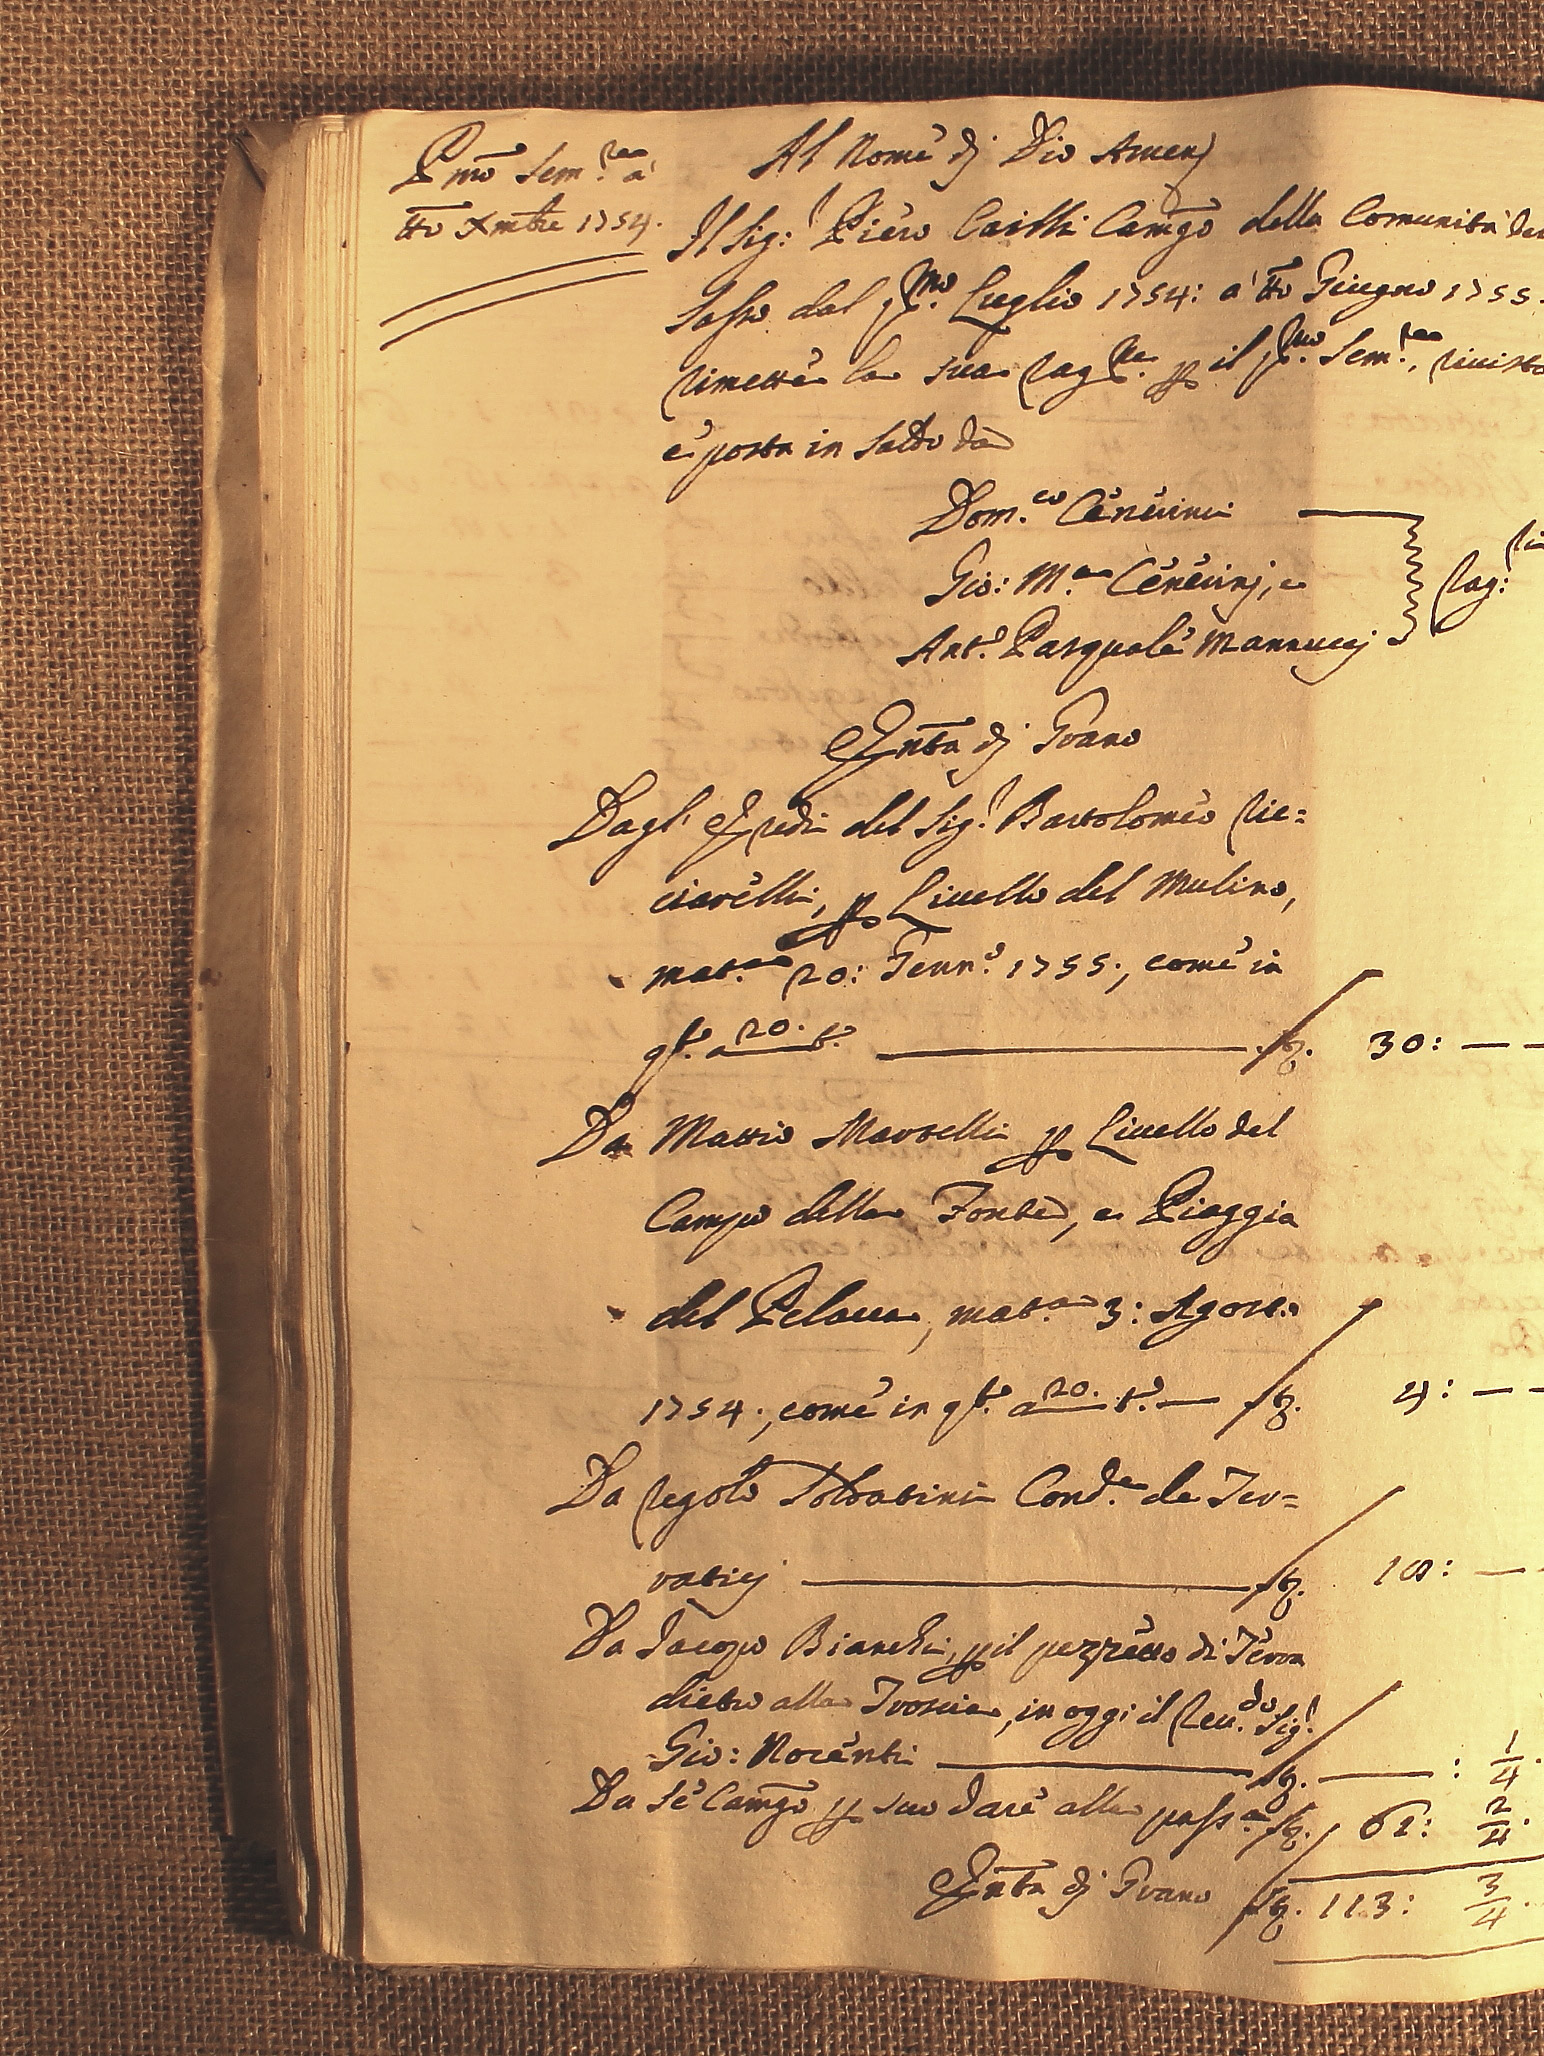 Pmo Sem.re à
tto Xmbre 1754.
Al Nome dj Dio Amen
Il Sig:r Piero Cailli Camgo della Comunità del
Sasso dal pmo. Luglio 1754: à tto Giugno 1755.
rimette la sua rag.ne p il pmo. Sem.re, rivista
e posta in Saldo da
Dom.co Cenerini
Gio: M.a Cenerinj, e
Ant.o Pasquale Mannuccj
Rag:ri
Entta dj Grano
Dagl' Eredi del Sig.r Bartolomeo Ric=
ciarelli, p Livello del Mulino,
mat.a 20: Genn.o 1755., come in
qto. a 20. t.o fg. 30: —
Da Mattio Martelli p Livello del
Campo della Fonte, e Piaggia
del Pelacca, mat.a 3: Agost.o
1754., come in qto. a 20. t.o — fg. 4: — —
Da Regolo Soldatini Cond.e de Ter=
raticj fg. 18: —
Da Jacopo Bianchi, p il pezzetto di Terra
dietro alla Troscia, in oggi il Reu.do Sig.r
Gio: Nocenti fg. — : 1/4.
Da Se Camgo p suo dare alla pass.a fg. 61: 2/4.
Entta dj Grano fg. 113: 3/4.